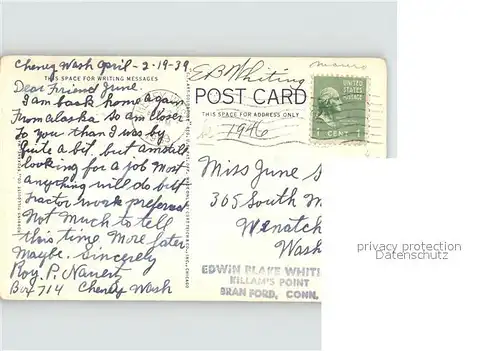 Cheney Wash April - 2-19-39
THIS SPACE FOR WRITING MESSAGES
Dear Friend June.
I am back home again
From Alaska so am closer
to you than I was by
quite a bit. but am still
looking for a job Most
anything will do but
tractor work preferred
Not much to tell
this time More later
Maybe. Sincerely
Roy. P.
Box 714 Cheney Wash
E B Whiting
POST CARD
THIS SPACE FOR ADDRESS ONLY
1946
UNITED
STATES
POSTAGE
1 CENT 1
Miss June
305 South M
Wenatch
Wash
EDWIN BLAKE WHITI
KILLAM'S POINT
BRANFORD, CONN.
privacy protection
Datenschutz